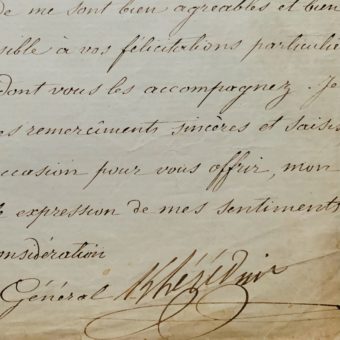 de me sont bien agréables et bien
sible à vos félicitations particuli
dont vous les accompagnez. Je
es remercîments sincères et saisis
ccasion pour vous offrir, mon
expression de mes sentiments
onsidération
Général Khérédine